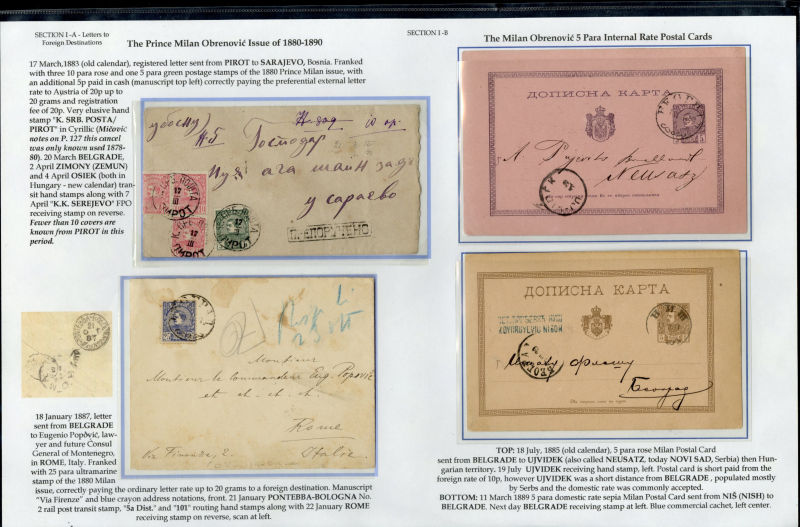 SECTION I -A - Letters to
Foreign Destinations
The Prince Milan Obrenović Issue of 1880-1890
17 March,1883 (old calendar), registered letter sent from PIROT to SARAJEVO, Bosnia. Franked
with three 10 para rose and one 5 para green postage stamps of the 1880 Prince Milan issue, with
an additional 5p paid in cash (manuscript top left) correctly paying the preferential external letter
rate to Austria of 20p up to
20 grams and registration
fee of 20p. Very elusive hand
stamp "K. SRB. POSTA/
PIROT" in Cyrillic (Mićović
notes on P. 127 this cancel
was only known used 1878-
80). 20 March BELGRADE,
2 April ZIMONY (ZEMUN)
and 4 April OSIEK (both in
Hungary - new calendar) tran-
sit hand stamps along with 7
April "K.K. SEREJEVO" FPO
receiving stamp on reverse.
Fewer than 10 covers are
known from PIROT in this
period.
Господар
у сараево
ПИРОТ
ПИРОТ
ПИРОТ
ПРЕПОРУЧЕНО
Monsieur
Monsieur le Commandeur Eug. Popović
Rome
Via Firenze, 2.
Italie
18 January 1887, letter
sent from BELGRADE
to Eugenio Popðvić, law-
yer and future Consul
General of Montenegro,
in ROME, Italy. Franked
with 25 para ultramarine
stamp of the 1880 Milan
issue, correctly paying the ordinary letter rate up to 20 grams to a foreign destination. Manuscript
"Via Firenze" and blue crayon address notations, front. 21 January PONTEBBA-BOLOGNA No.
2 rail post transit stamp, "5a Dist." and "101" routing hand stamps along with 22 January ROME
receiving stamp on reverse, scan at left.
SECTION I -B
The Milan Obrenović 5 Para Internal Rate Postal Cards
ДОПИСНА КАРТА
Neusatz
ДОПИСНА КАРТА
НИШ
Београд
TOP: 18 July, 1885 (old calendar), 5 para rose Milan Postal Card
sent from BELGRADE to UJVIDEK (also called NEUSATZ, today NOVI SAD, Serbia) then Hun-
garian territory. 19 July UJVIDEK receiving hand stamp, left. Postal card is short paid from the
foreign rate of 10p, however UJVIDEK was a short distance from BELGRADE , populated mostly
by Serbs and the domestic rate was commonly accepted.
BOTTOM: 11 March 1889 5 para domestic rate sepia Milan Postal Card sent from NIŠ (NISH) to
BELGRADE. Next day BELGRADE receiving stamp at left. Blue commercial cachet, left center.